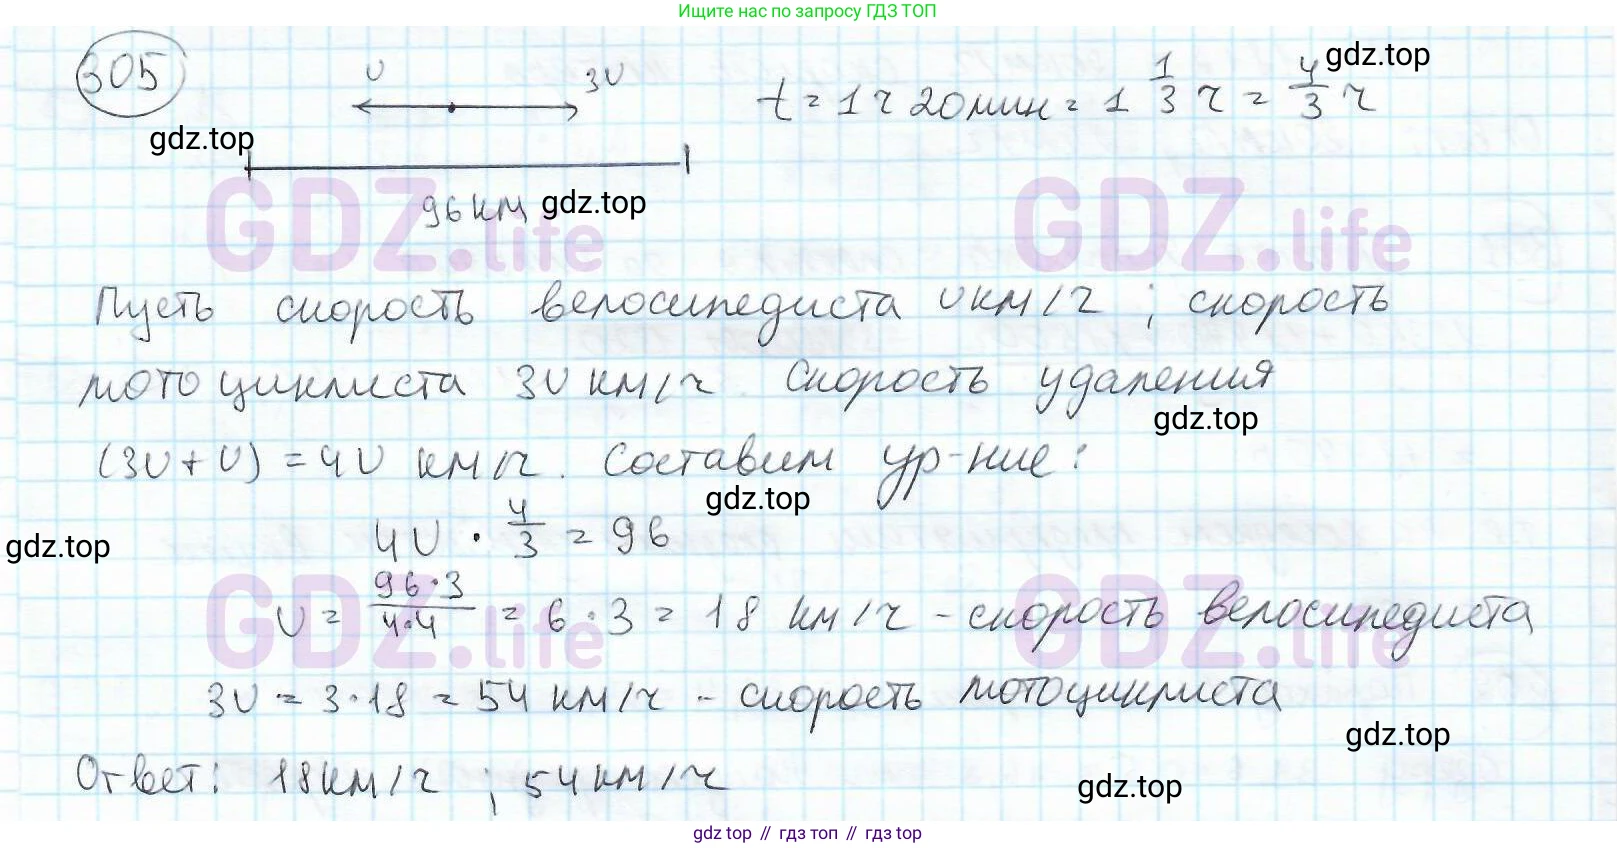 Ищите нас по запросу ГДЗ ТОП
305
υ
3υ
t = 1 ч 20 мин = 1 1/3 ч = 4/3 ч
gdz.top
gdz.top
96 км
gdz.top
GDZ.life
GDZ.life
Пусть скорость велосипедиста υ км/ч ; скорость
мотоциклиста 3υ км/ч. Скорость удаления
gdz.top
(3υ + υ) = 4υ км/ч. Составим ур-ние:
gdz.top
4υ · 4/3 = 96
gdz.top
υ = 96·3/4·4 = 6·3 = 18 км/ч - скорость велосипедиста
GDZ.life
GDZ.life
3υ = 3·18 = 54 км/ч - скорость мотоциклиста
gdz.top
Ответ: 18 км/ч ; 54 км/ч
gdz.top
gdz top // гдз топ // гдз top